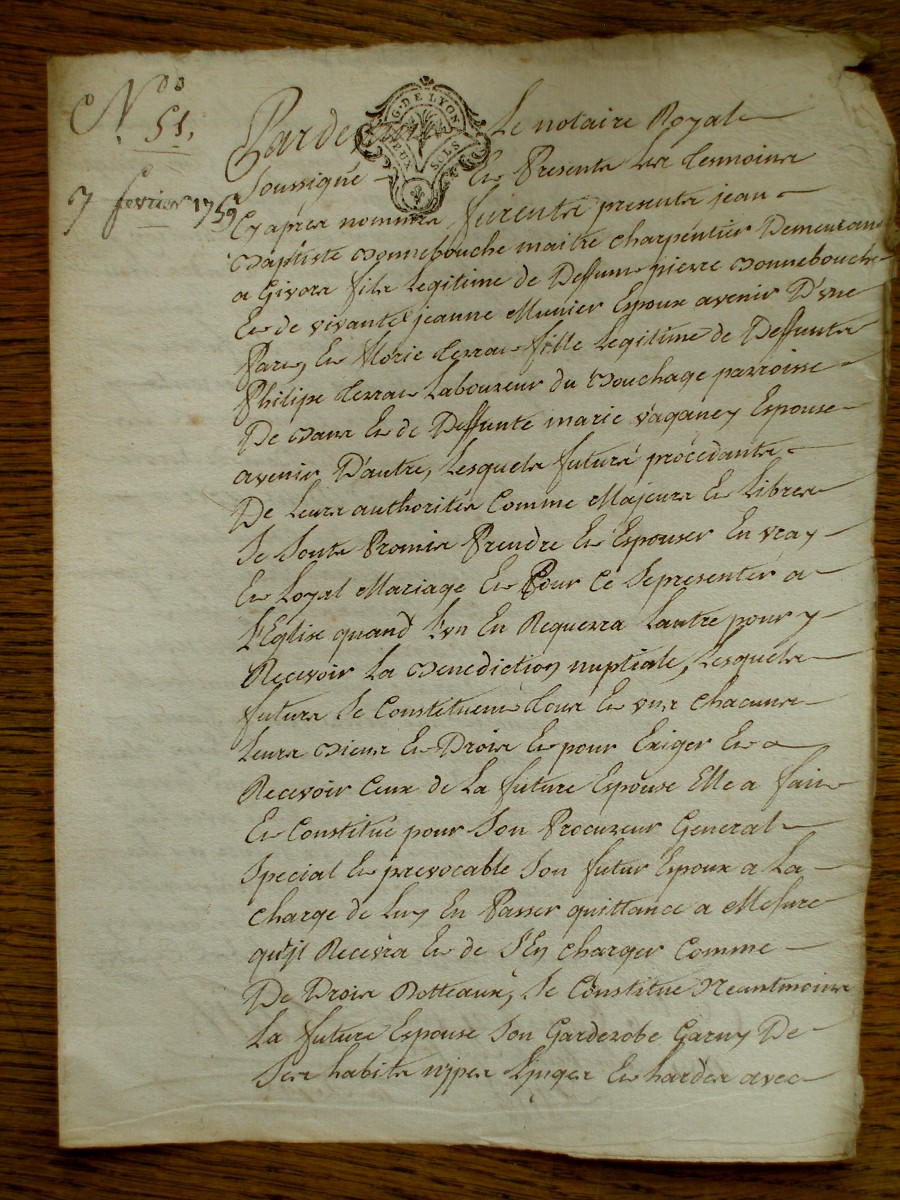 N.º 51,
7 fevrier 1759
G. DE LYON
DEUX SOLS
Pardevant Le notaire Royal
soussigné Et Presents Les temoins
Cy apres nommés furents presents jean
Baptiste Bonnebouche maitre charpentier Demeurant
a Givors fils Legitime de Deffunt pierre Bonnebouche
Et de vivante jeanne Munier Epoux avenir D'vne
Part, Et Marie terrat fille Legitime de Deffunts
Philipe terrat Laboureur du Bouchage parroisse
De Et de Deffunte marie vaganey Espouse
avenir D'autre, Lesquels futurs procedants
De Leurs authorités Comme Majeurs Et Libres
Se Sonts Promis Prendre Et Espouser En vray
Et Loyal Mariage Et Pour Ce Se presenter a
L'Eglise quand L'vn En Requerra Lautre pour y
Recevoir La Benediction nuptiale, Lesquels
futurs Se Constituent tous Et vns chacuns
Leurs Biens Et Droits Et pour Exiger Et
Recevoir Ceux de La future Espouse Elle a fait
Et Constitué pour Son Procureur General
Special Et jrrevocable Son futur Epoux a La
charge de Luy En Passer quittance a Mesure
qu'jl Recevra Et de S'En charger Comme
De Droits Dotteaux, Se Constitue Neantmoins
La future Espouse Son Garderobe Garny De
Ses habits nipes Linges Et hardes avec